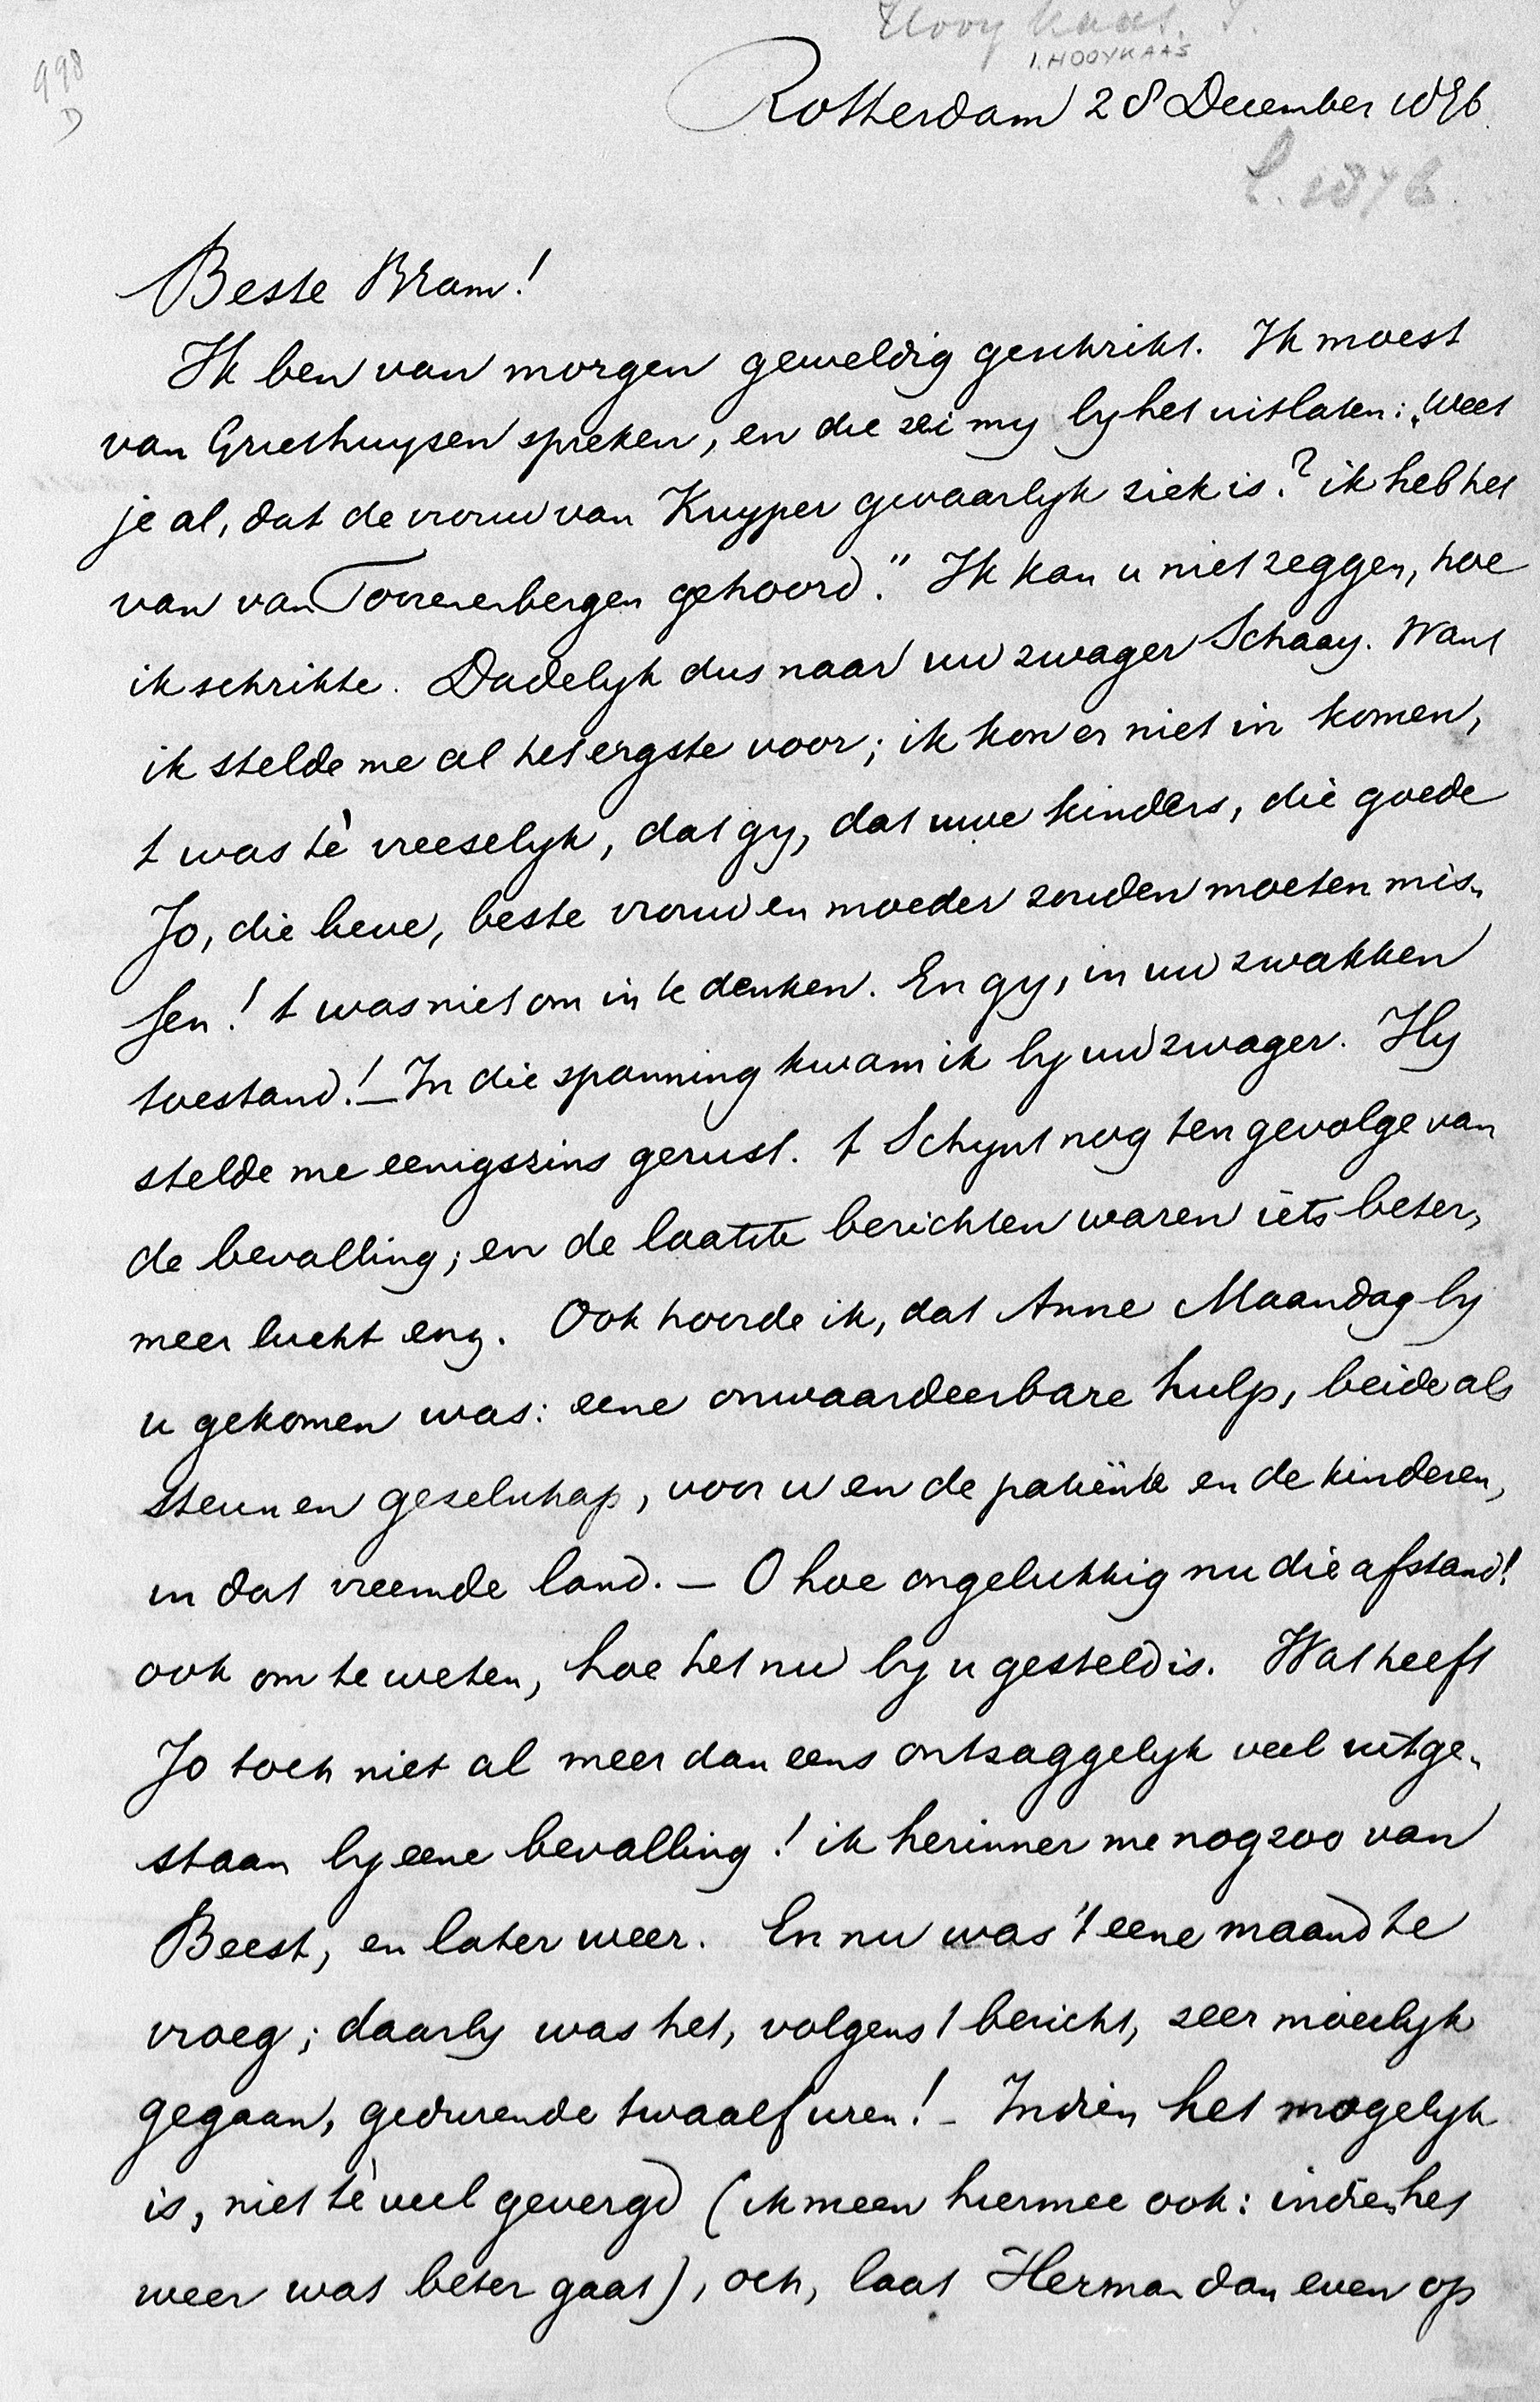 Hooykaas. I.
I. HOOYKAAS
998
D
Rotterdam 28 December 1876.
C. 1876.
Beste Bram!
Ik ben van morgen geweldig geschrikt. Ik moest
van Griethuysen spreken, en die zei my by het uitlaten: „Weet
je al, dat de vrouw van Kuyper gevaarlyk ziek is? ik heb het
van van Toorenenbergen gehoord." Ik kan u niet zeggen, hoe
ik schrikte. Dadelyk dus naar uw zwager Schaay. Want
ik stelde me al het ergste voor; ik kon er niet in komen,
t was tè vreeselyk, dat gy, dat uwe kinders, die goede
Jo, die lieve, beste vrouw en moeder zouden moeten mis-
sen! t was niet om in te denken. En gy, in uw zwakken
toestand! — In die spanning kwam ik by uw zwager. Hy
stelde me eenigszins gerust. t Schynt nog ten gevolge van
de bevalling; en de laatste berichten waren iets beter,
meer lucht enz. Ook hoorde ik, dat Anne Maandag by
u gekomen was: eene onwaardeerbare hulp, beide als
steun en gezelschap, voor u en de patiënte en de kinderen,
in dat vreemde land. — O hoe ongelukkig nu die afstand!
ook om te weten, hoe het nu by u gesteld is. Wat heeft
Jo toch niet al meer dan eens ontzaggelyk veel uitge-
staan by eene bevalling! ik herinner me nog zoo van
Beest, en later weer. En nu was 't eene maand te
vroeg; daarby was het, volgens t bericht, zeer moeilyk
gegaan, gedurende twaalf uren! — Indien het mogelyk
is, niet tè veel gevergd (ik meen hiermee ook: indien het
weer wat beter gaat), och, laat Herman dan even op